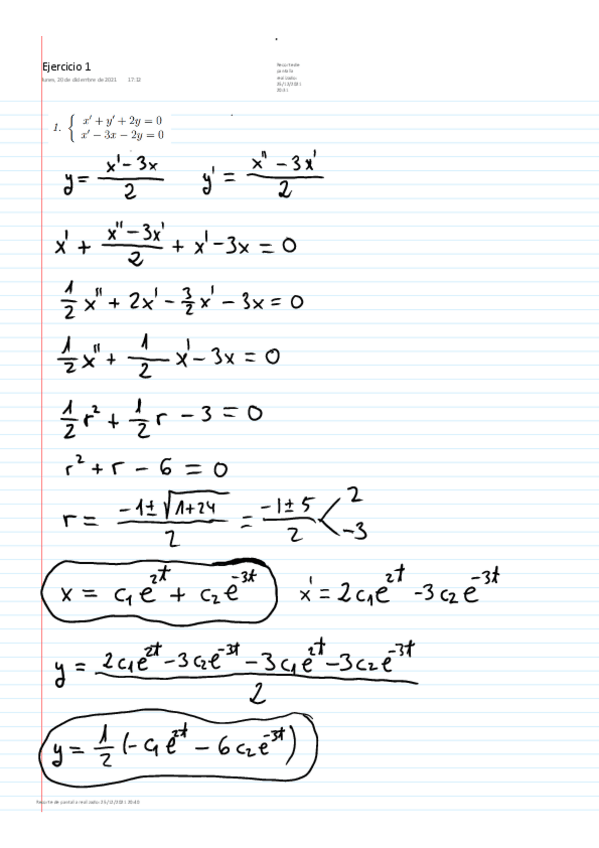 Ejercicio 1
lunes, 20 de diciembre de 2021 17:12
Recorte de
pantalla
realizado:
1. { x' + y' + 2y = 0
x' − 3x − 2y = 0
y = (x' − 3x)/2   y' = (x'' − 3x')/2
x' + (x'' − 3x')/2 + x' − 3x = 0
1/2 x'' + 2x' − 3/2 x' − 3x = 0
1/2 x'' + 1/2 x' − 3x = 0
1/2 r² + 1/2 r − 3 = 0
r² + r − 6 = 0
r = (−1 ± √(1+24))/2 = (−1 ± 5)/2 < 2
−3
x = c₁e^(2t) + c₂e^(−3t)   x' = 2c₁e^(2t) − 3c₂e^(−3t)
y = (2c₁e^(2t) − 3c₂e^(−3t) − 3c₁e^(2t) − 3c₂e^(−3t))/2
y = 1/2 (−c₁e^(2t) − 6c₂e^(−3t))
Recorte de pantalla realizado: